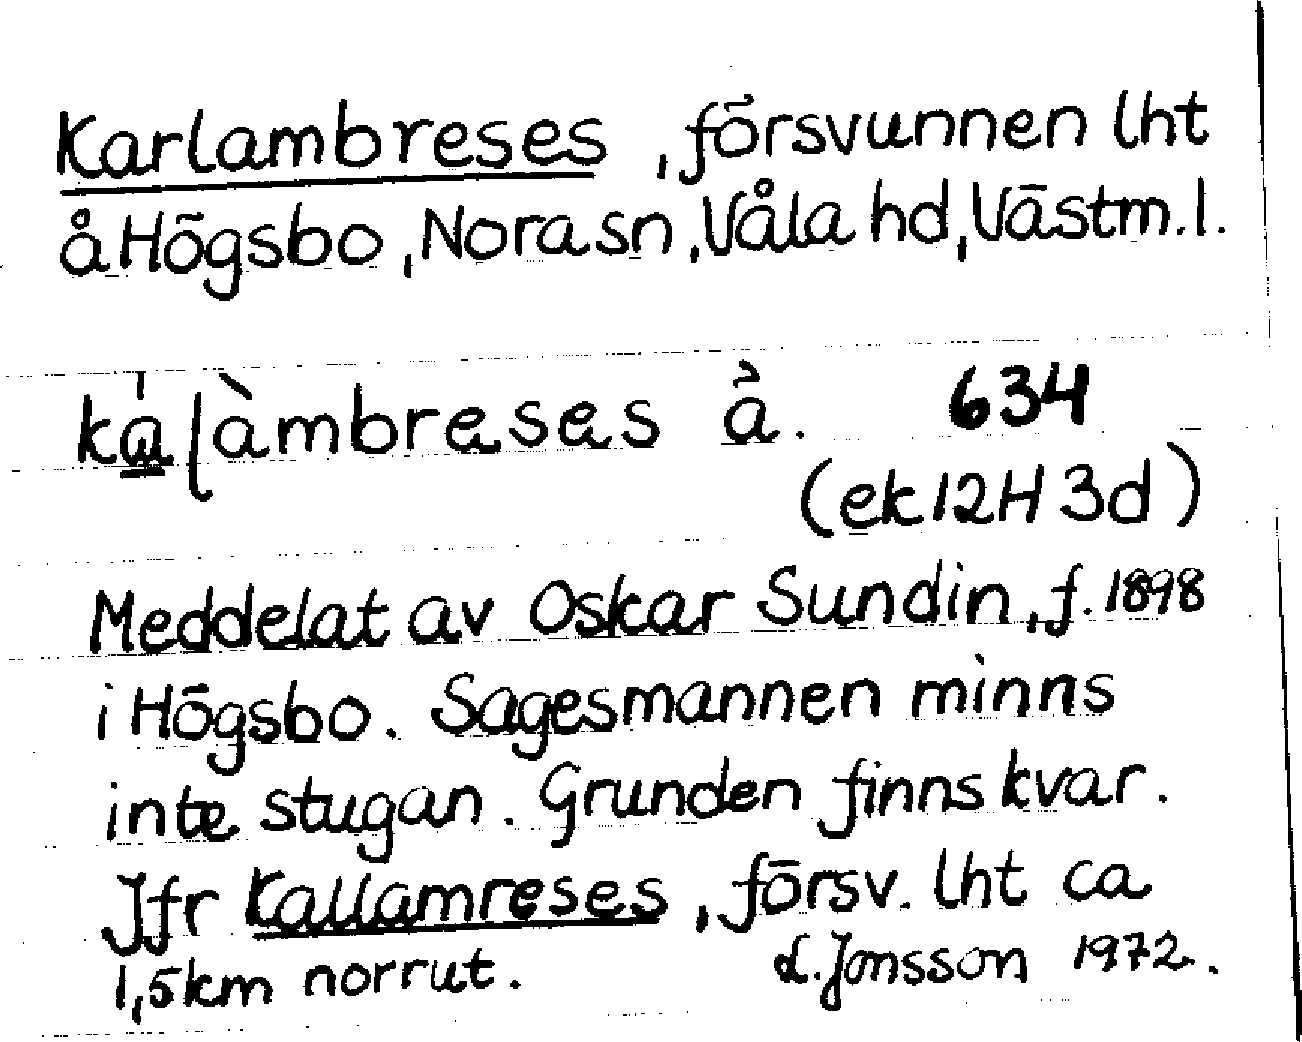 Karlambreses, försvunnen lht
å Högsbo, Nora sn, Våla hd, Västm. l.
ká̲ɭàmbreses å̀. 634
(ek 12H 3d)
Meddelat av Oskar Sundin, f. 1898
i Högsbo. Sagesmannen minns
inte stugan. Grunden finns kvar.
Jfr Kallamreses, försv. lht ca
1,5 km norrut. L. Jonsson 1972.